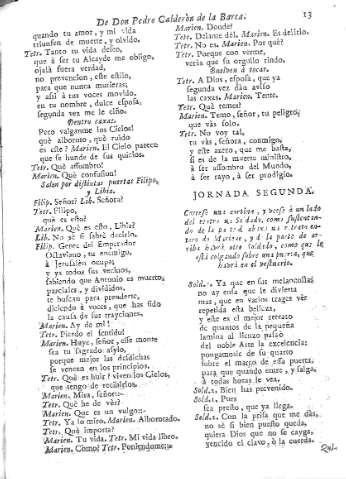 De Don Pedro Calderòn de la Barca.
13
quando tu amor, y mi vida
triunfen de muerte, y olvido.
Tetr. Tanto tu vida deseo,
que à ser tu Alcayde me obligo,
ojalà fuera verdad,
no prevencion, este estilo,
para que nunca murieras;
y assi à tus voces movido,
en tu nombre, dulce esposa,
segunda vez me le ciño.
Dentro caxas.
Pero valgame los Cielos!
què alboroto, què ruido
es este? Marien. El Cielo parece
que se hunde de sus quicios.
Tetr. Què assombro!
Marien. Què confusion!
Salen por distintas puertas Filipo,
y Libia.
Filip. Señor? Lib. Señora?
Tetr. Filipo,
què es esto?
Marien. Què es esto, Libia?
Lib. No sè si sabrè decirlo.
Filip. Gente del Emperador
Octaviano, tu enemigo,
à Jerusalèn ocupa;
y ya todos sus vecinos,
sabiendo que Antonio es muerto,
parciales, y divididos,
te buscan para prenderte,
diciendo à voces, que has sido
la causa de sus trayciones.
Marien. Ay de mì!
Tetr. Pierdo el sentido!
Marien. Huye, señor, esse monte
sea tu sagrado asylo,
porque mejor las desdichas
se vencen en los principios.
Tetr. Què es huir? viven los Cielos,
que tengo de recibirlos.
Marien. Mira, señor:-
Tetr. Què he de vèr?
Marien. Que es un vulgo:-
Tetr. Ya lo miro. Marien. Alborotado.
Tetr. Què importa?
Marien. Tu vida. Tetr. Mi vida libro.
Marien. Còmo? Tetr. Poniendome:-
Marien. Donde?
Tetr. Delante dèl. Marien. Es delirio.
Tetr. No es. Marien. Por què?
Tetr. Porque con verme,
verìa que su orgullo rindo.
Buelven à tocar.
Tetr. A Dios, esposa, que ya
segunda vez dàn aviso
las caxas. Marien. Tente.
Tetr. Què temes?
Marien. Temo, señor, tu peligro;
que vàs solo.
Tetr. No voy tal,
tu vàs, señora, conmigo;
y este azero, que me basta,
si es de la muerte ministro,
à ser assombro del Mundo,
à ser rayo, à ser prodigio.
JORNADA SEGUNDA.
Sold.1. Ya que en sus melancolias
no ay cosa que le divierta
mas, que en varios trages vèr
repetida esta belleza,
y este es el mejor retrato
de quantos de la pequeña
lamina al lienzo passò
del noble Arte la excelencia;
pongamosle de su quarto
sobre el marco de essa puerta,
para que quando entre, y salga,
à todas horas le vea.
Sold.2. Bien has prevenido.
Sold.1. Pues
sea presto, que ya llega.
Sold.2. Con la prisa que me dàs,
no sè si bien puesto queda,
quiera Dios que no se cayga,
vencido el clavo, ò la cuerda.